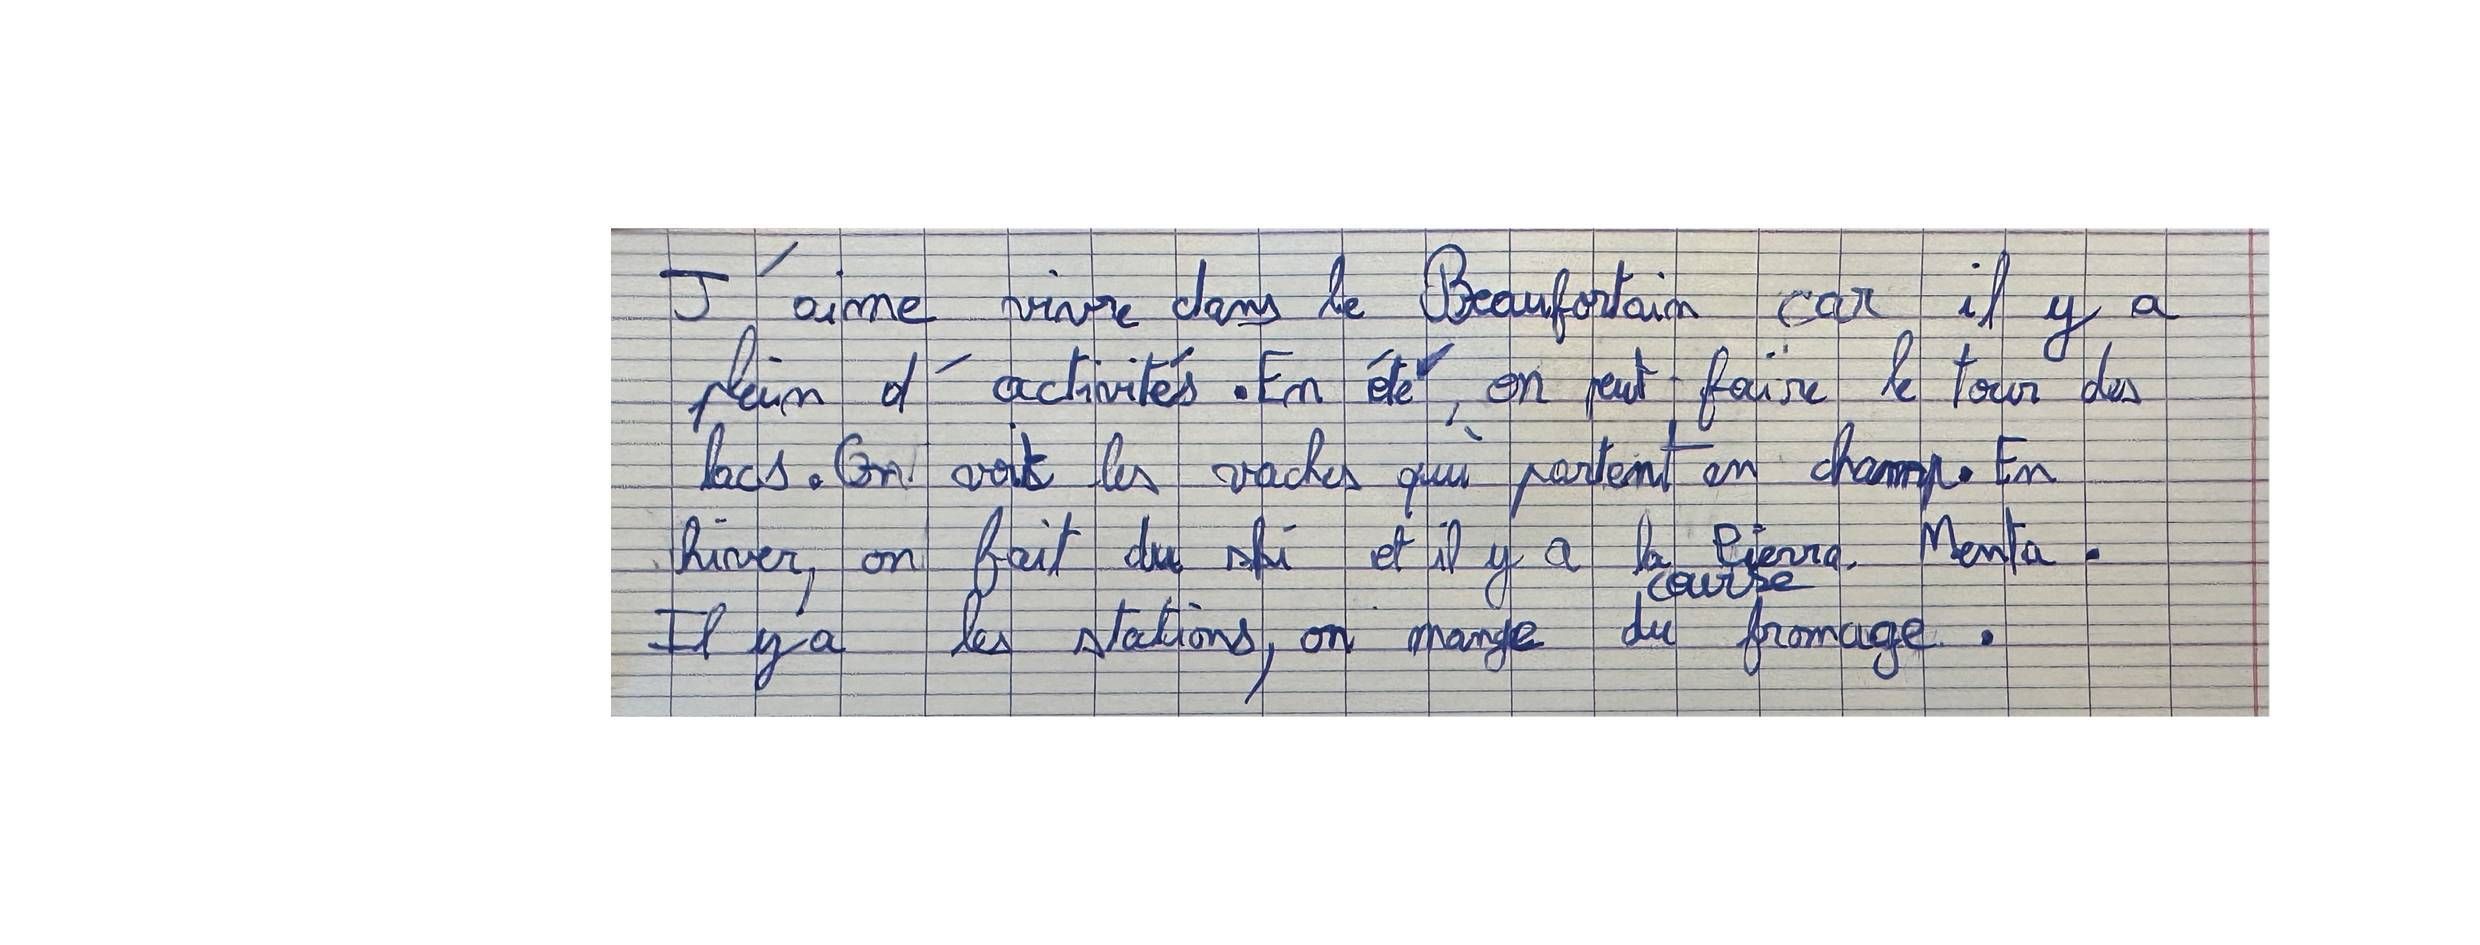 J'aime vivre dans le Beaufortain car il y a
plein d'activités. En été, on peut faire le tour des
lacs. On voit les vaches qui partent en champ. En
hiver, on fait du ski et il y a la Pierra Menta.
course
Il y a les stations, on mange du fromage.